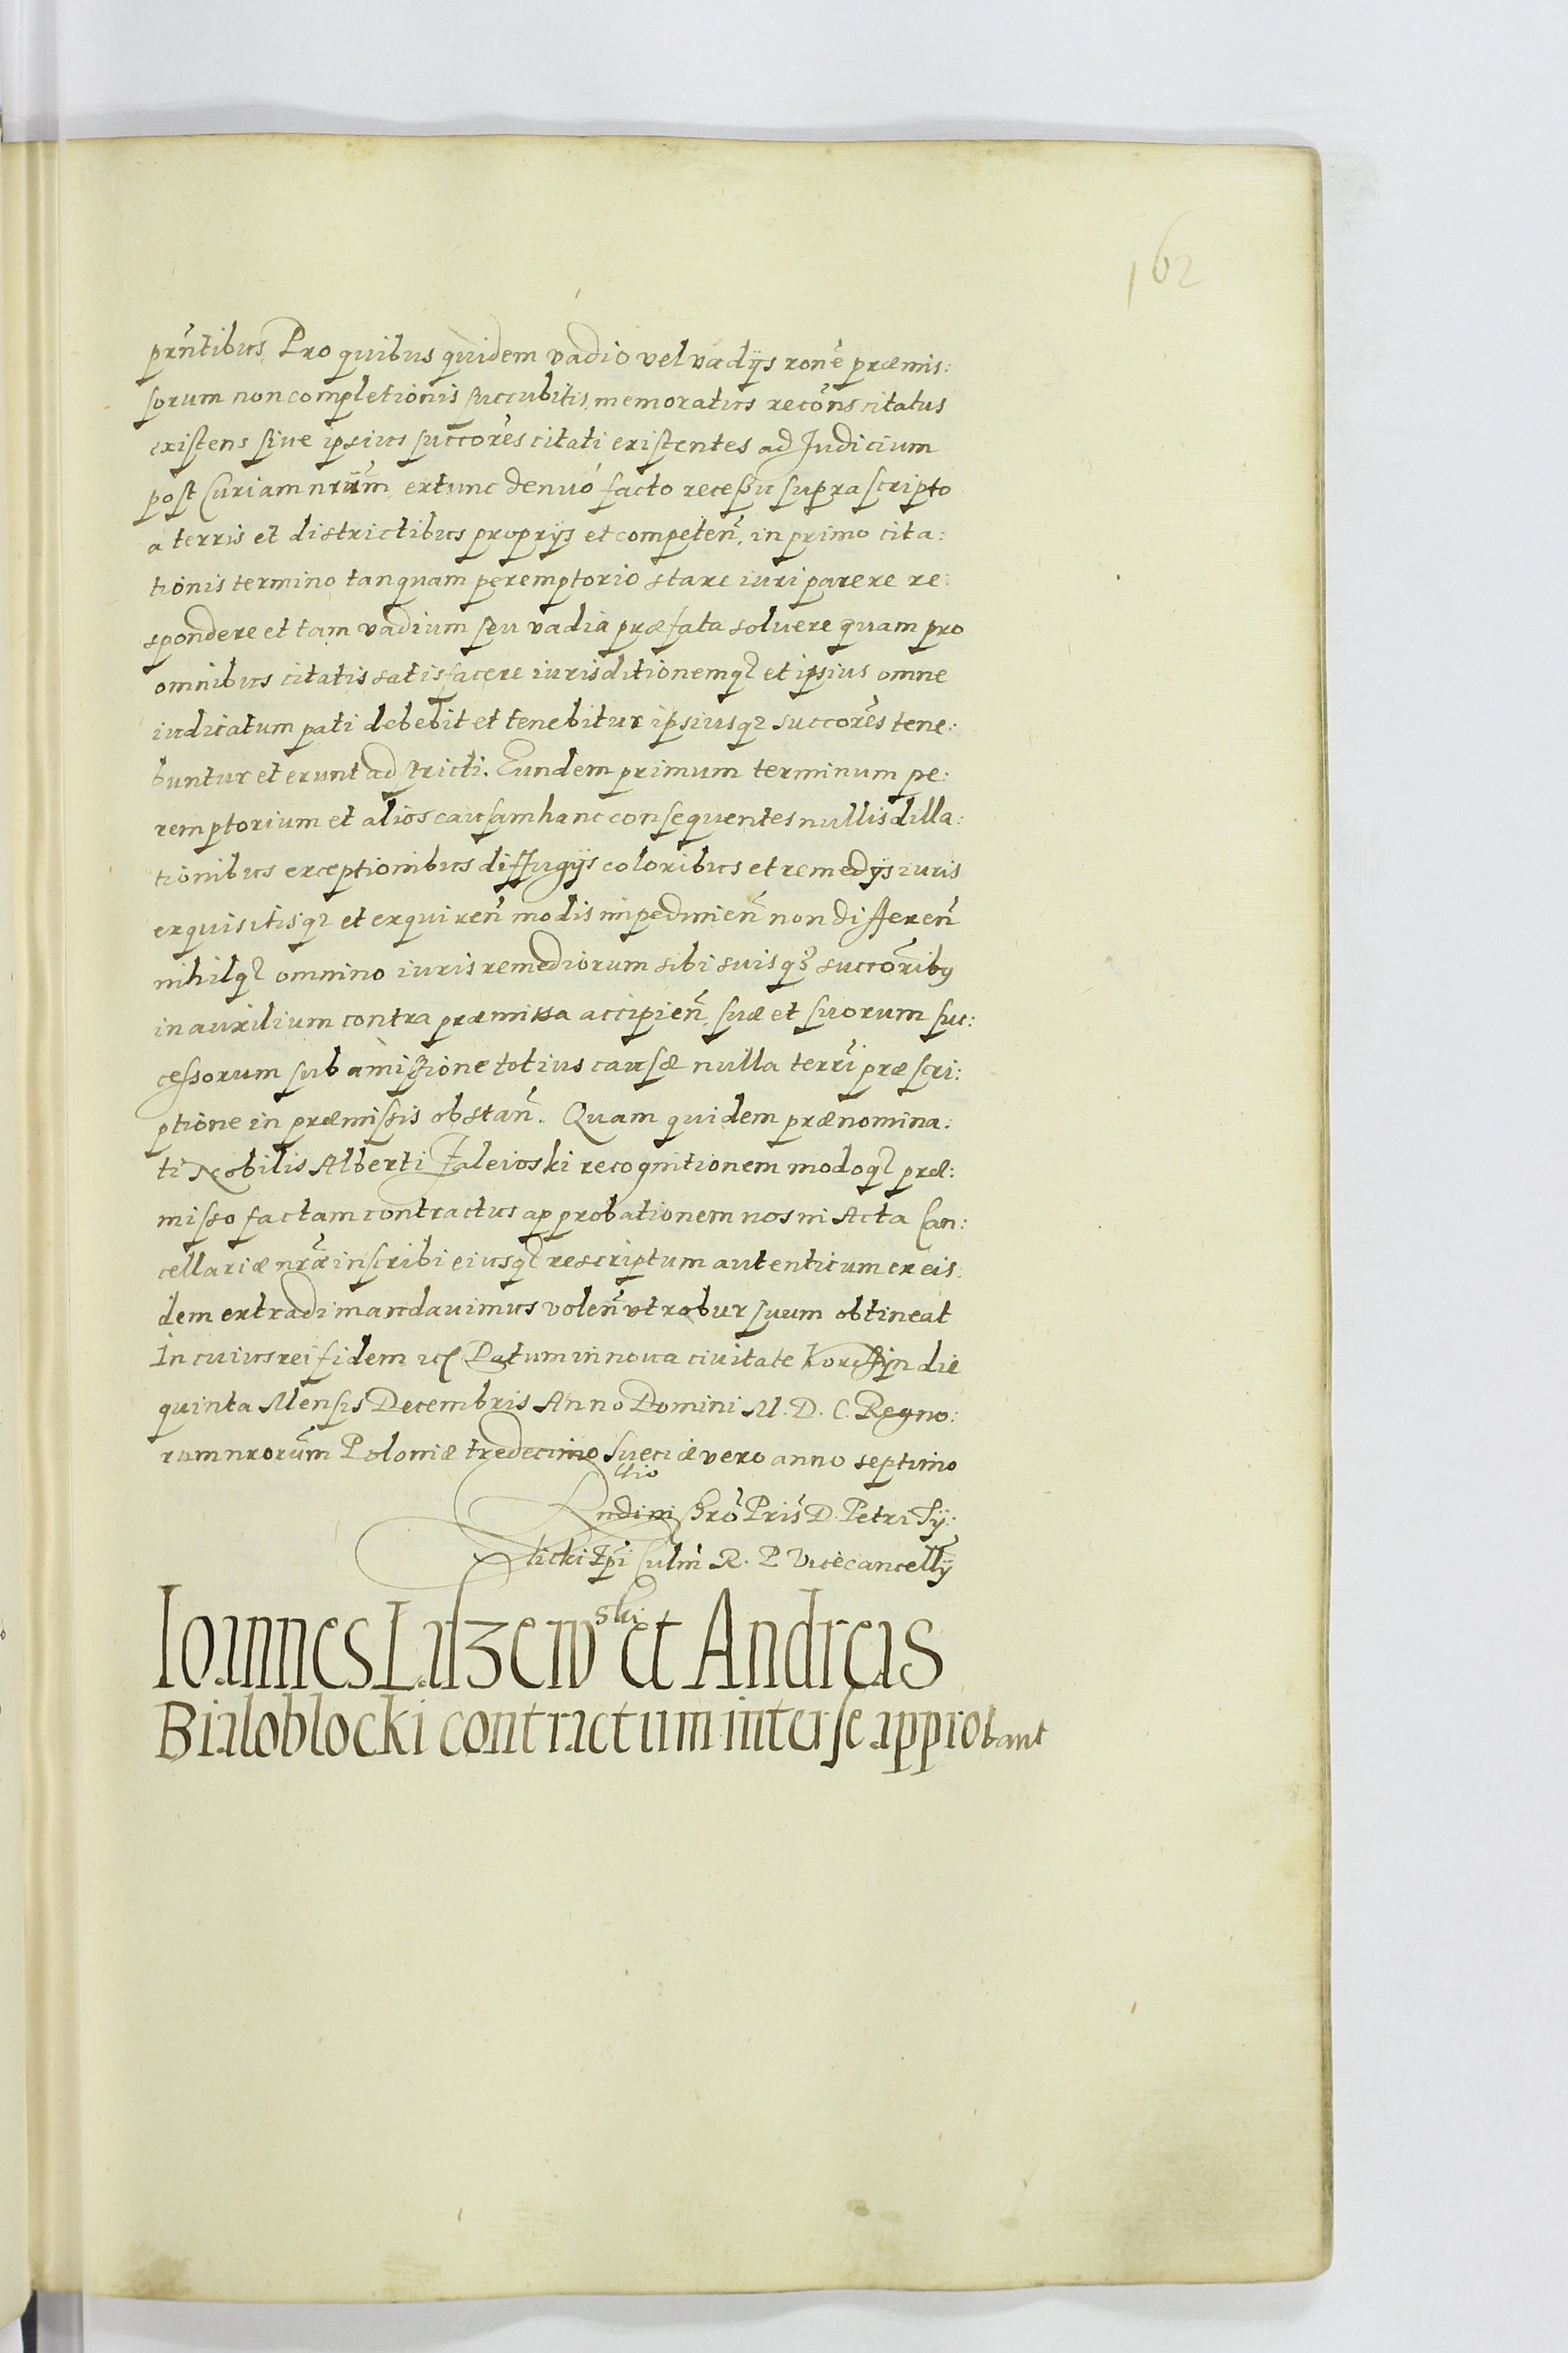 162
prñtibus, Pro quibus quidem vadio vel vadijs roñe præmis:
sorum non completionis succubitis, memoratus recõns citatus
existens siue ipsius succõres citati existentes ad Judicium
post Curiam nrũm extunc denuó facto recessu supra scripto
a terris et districtibus proprijs et competeñ, in primo cita:
tionis termino tanquam peremptorio stare iuri parere re:
spondere et tam vadium seu vadia præfata soluere quam pro
omnibus citatis satisfacere iurisditionemq3 et ipsius omne
iudicatum pati debebit et tenebitur ipsiusq3 succõres tene:
buntur et erunt adstricti. Eundem primum terminum pe:
remptorium et alios causam hanc consequentes nullis dilla:
tionibus exceptionibus diffugijs coloribus et remedijs iuris
exquisitisq3 et exquireñ modis impedimeñ non differeñ
nihilq3 omnino iuris remediorum sibi suisq3 succõribus
in auxilium contra præmissa accipieñ, suæ et suorum suc:
cessorum sub amissione totius causæ nulla terrĩ præscri:
ptione in præmissis obstañ. Quam quidem prænomina:
ti Nobilis Alberti Zaleioski recognitionem modoq3 præ:
misso factam contractus approbationem nos in Acta Can:
cellariæ nrãe inscribi eiusq3 rescriptum autenticum ex eis:
dem extradi mandauimus voleñ vt robur suum obtineat
In cuius rei fidem etc Datum in noua ciuitate Korcssin die
quinta Mensis Decembris Anno Domini M. D. C. Regno:
rum nrorũm Poloniæ tredecimo Sueciæ vero anno septimo
Rndim Chrõ Pris D. Petri Ty:
licki Epĩ Culm̃ R. P. Vicecancellij
Ioannes Luszewski et Andreas
Bialoblocki contractum inter se approbant